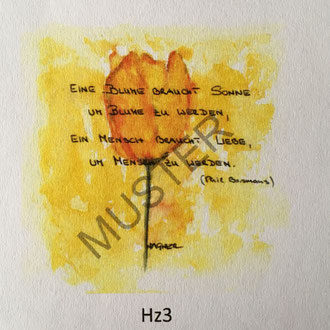 Eine Blume braucht Sonne
um Blume zu werden,
ein Mensch braucht Liebe,
um Mensch zu werden.
(Phil Bosmans)
MUSTER
WAGNER
Hz3